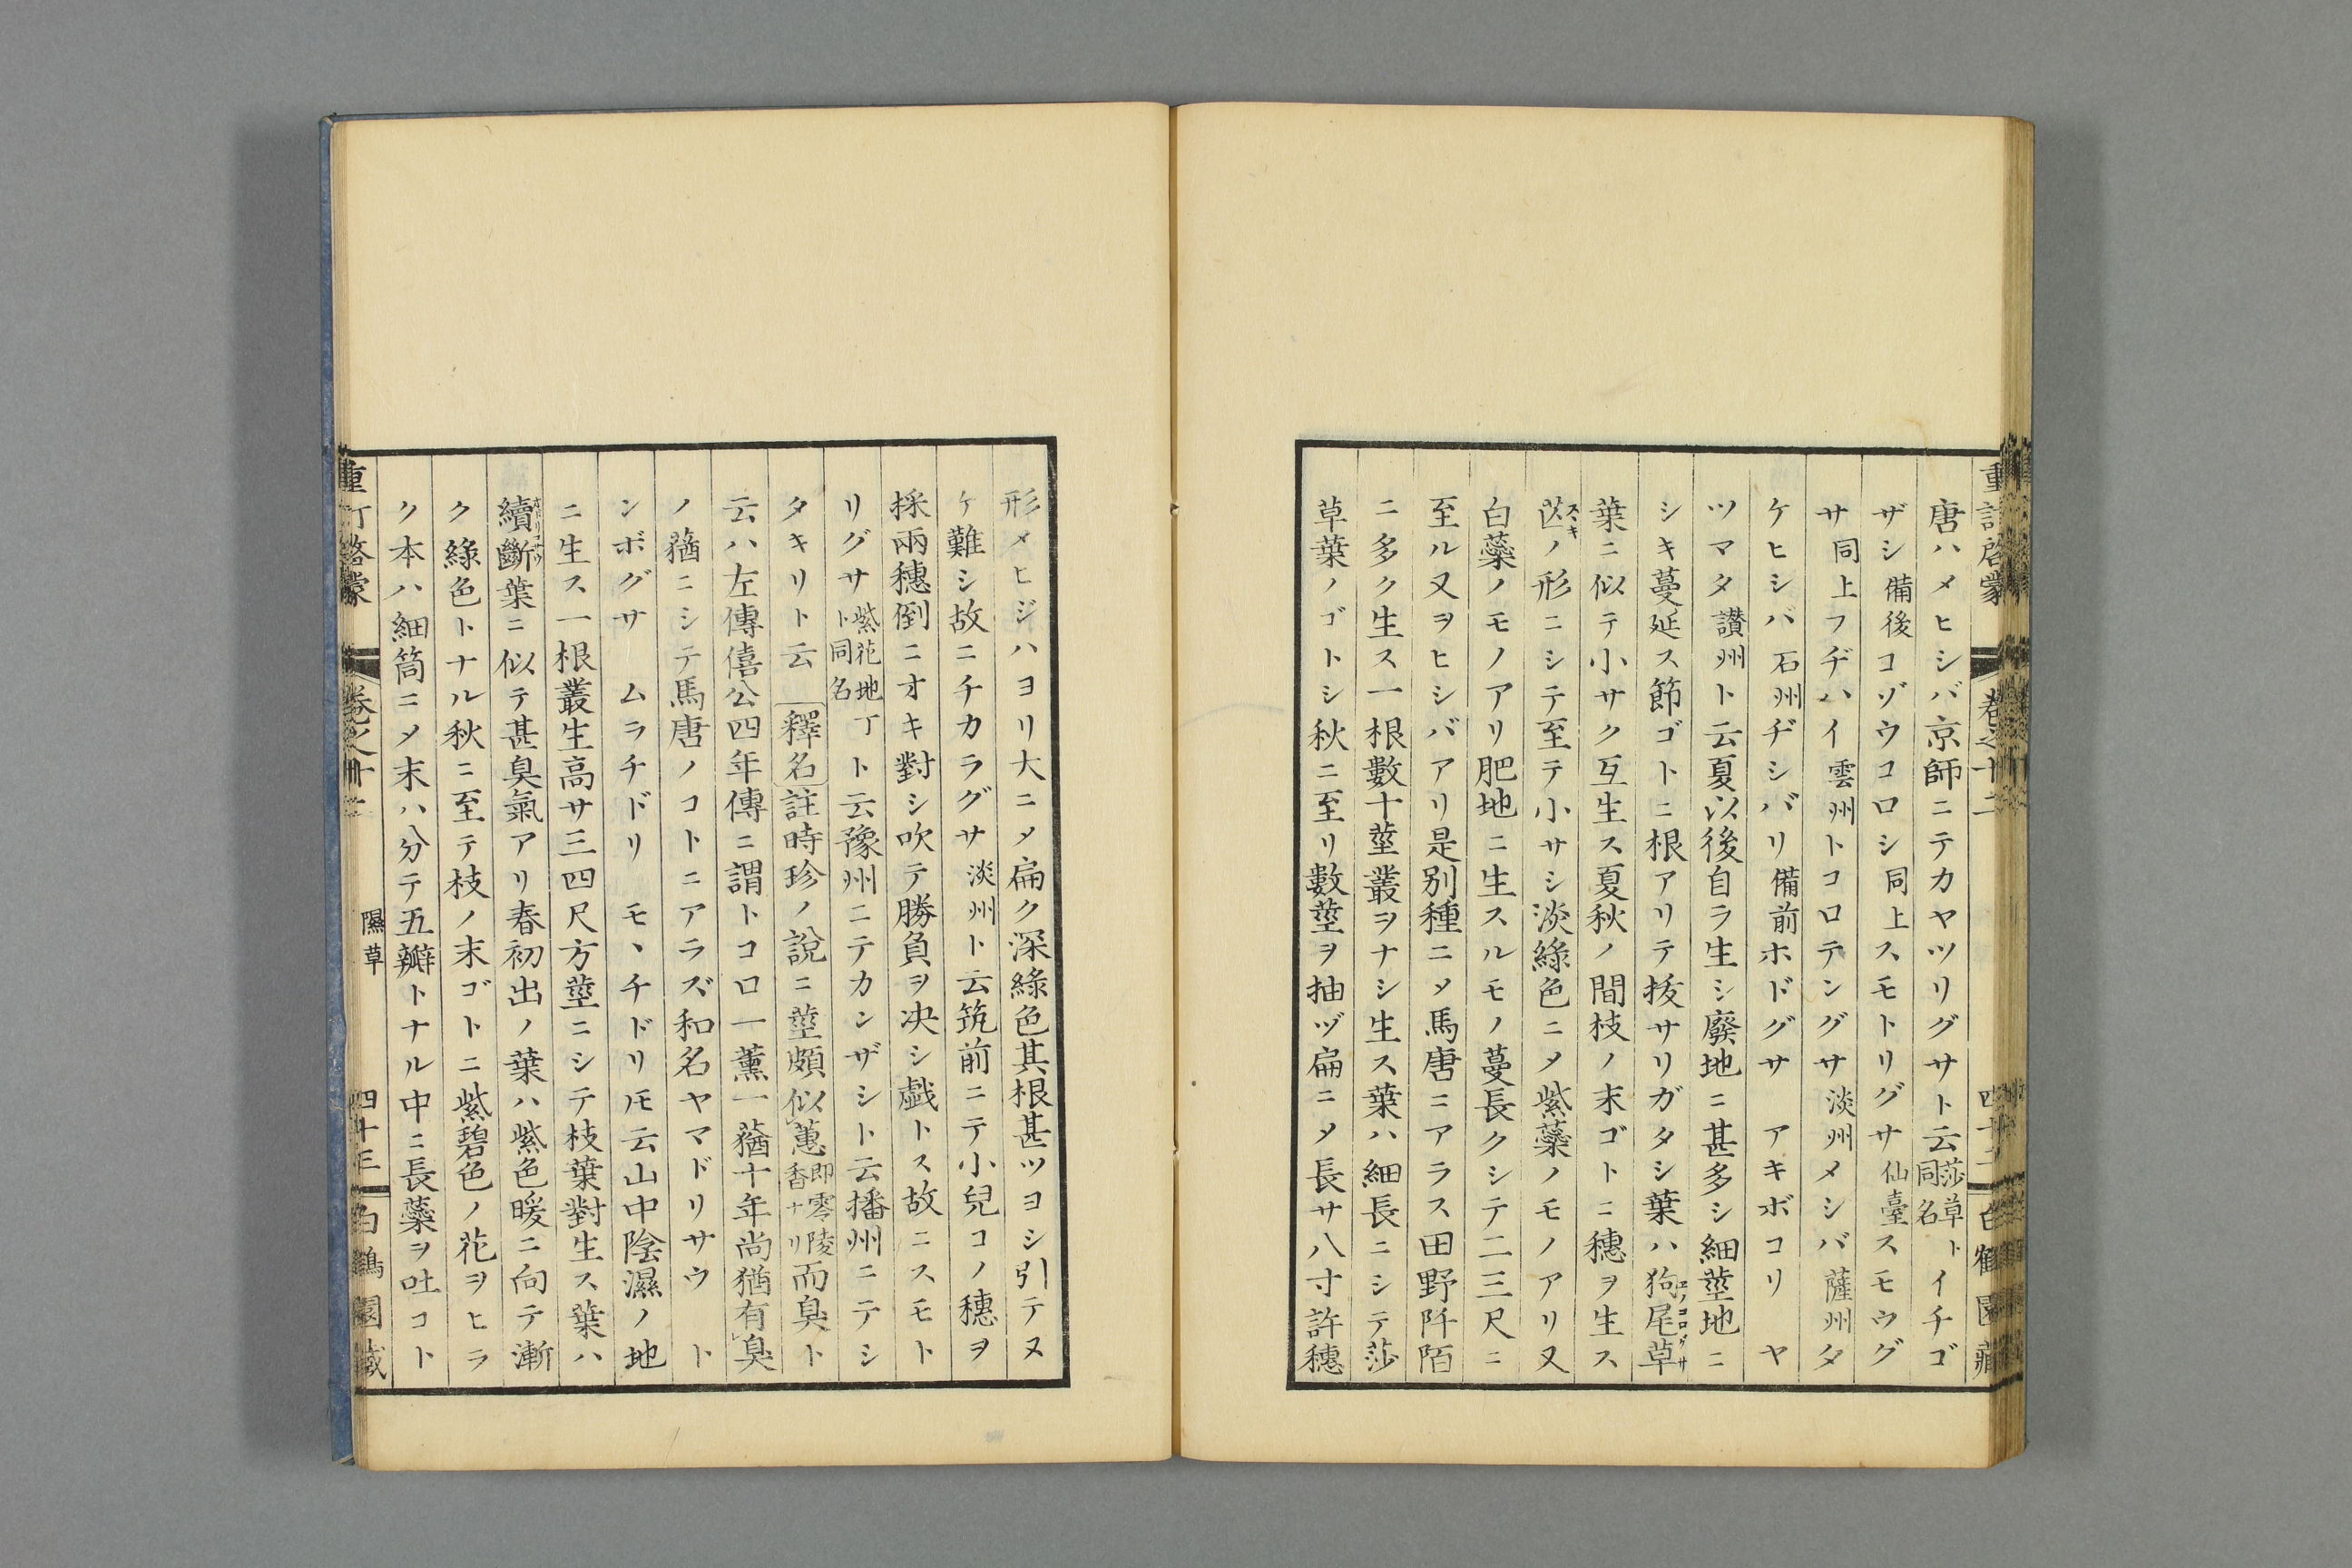 唐ハメヒシバ京師ニテカヤツリグサト云莎草ト同名イチゴ
ザシ備後コゾウコロシ同上スモトリグサ仙臺スモウグ
サ同上フヂハイ雲州トコロテングサ淡州メシバ薩州タ
ケヒシバ石州ヂシバリ備前ホドグサ アキボコリ ヤ
ツマタ讃州ト云夏以後自ラ生シ廢地ニ甚多シ細莖地ニ
シキ蔓延ス節ゴトニ根アリテ拔サリガタシ葉ハ狗尾草エノコログサ
葉ニ似テ小サク互生ス夏秋ノ間枝ノ末ゴトニ穗ヲ生ス
ノ形ニシテ至テ小サシ淡綠色ニメ紫蘂ノモノアリ又
白蘂ノモノアリ肥地ニ生スルモノ蔓長クシテ二三尺ニ
至ル又ヲヒシバアリ是別種ニメ馬唐ニアラス田野阡陌
ニ多ク生ス一根數十莖叢ヲナシ生ス葉ハ細長ニシテ莎
草葉ノゴトシ秋ニ至リ數莖ヲ抽ヅ扁ニメ長サ八寸許穗
形メヒジハヨリ大ニメ扁ク深綠色其根甚ツヨシ引テヌ
ケ難シ故ニチカラグサ淡州ト云筑前ニテ小兒コノ穗ヲ
採兩穗倒ニオキ對シ吹テ勝負ヲ决シ戯トス故ニスモト
リグサ紫花地丁ト同名ト云豫州ニテカンザシト云播州ニテシ
タキリト云 釋名註時珍ノ說ニ莖頗似蕙即零陵香ナリ而臭ト
云ハ左傳僖公四年傳ニ謂トコロ一薰一蕕十年尚猶有臭
ノ蕕ニシテ馬唐ノコトニアラズ和名ヤマドリサウ ト
ンボグサ ムラチドリ モヽチドリ𪜈云山中陰濕ノ地
ニ生ス一根叢生高サ三四尺方莖ニシテ枝葉對生ス葉ハ
續斷葉ニ似テ甚臭氣アリ春初出ノ葉ハ紫色暖ニ向テ漸
ク綠色トナル秋ニ至テ枝ノ末ゴトニ紫碧色ノ花ヲヒラ
ク本ハ細筒ニメ末ハ分テ五瓣トナル中ニ長蘂ヲ吐コト
隰草
四十三